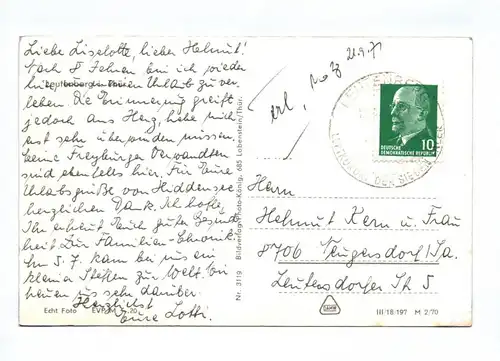 Liebe Liselotte, lieber Helmut!
Nach 8 Jahren bin ich wieder
hier, um meinen Urlaub zu ver-
Leutenberg in Thür.
leben. Die Erinnerung greift
jedoch ans Herz, habe mich
erst sehr überwinden müssen.
Meine Freyburger Verwandten
sind ebenfalls hier. Für Eure
Urlaubsgrüße von Hiddensee
herzlichen Dank. Ich hoffe,
Ihr erfreut Euch guter Gesund-
heit. Zur Familien-Chronik:
Am 5. 7. kam bei uns ein
kleiner Steffen zur Welt. Wir
freuen uns sehr darüber.
Herzlichst
Eure Lotti.
Echt Foto EVP M -.20
Bild-Verlag Foto-König, 685 Lobenstein/Thür.
Nr. 3119
erl,
21.9.71
DER SIEBEN TÄLER
10
DEUTSCHE
DEMOKRATISCHE REPUBLIK
Herrn
Helmut Kern u. Frau
8706 Neugersdorf/Sa.
Leutersdorfer Str 5
III/18/197 M 2/70